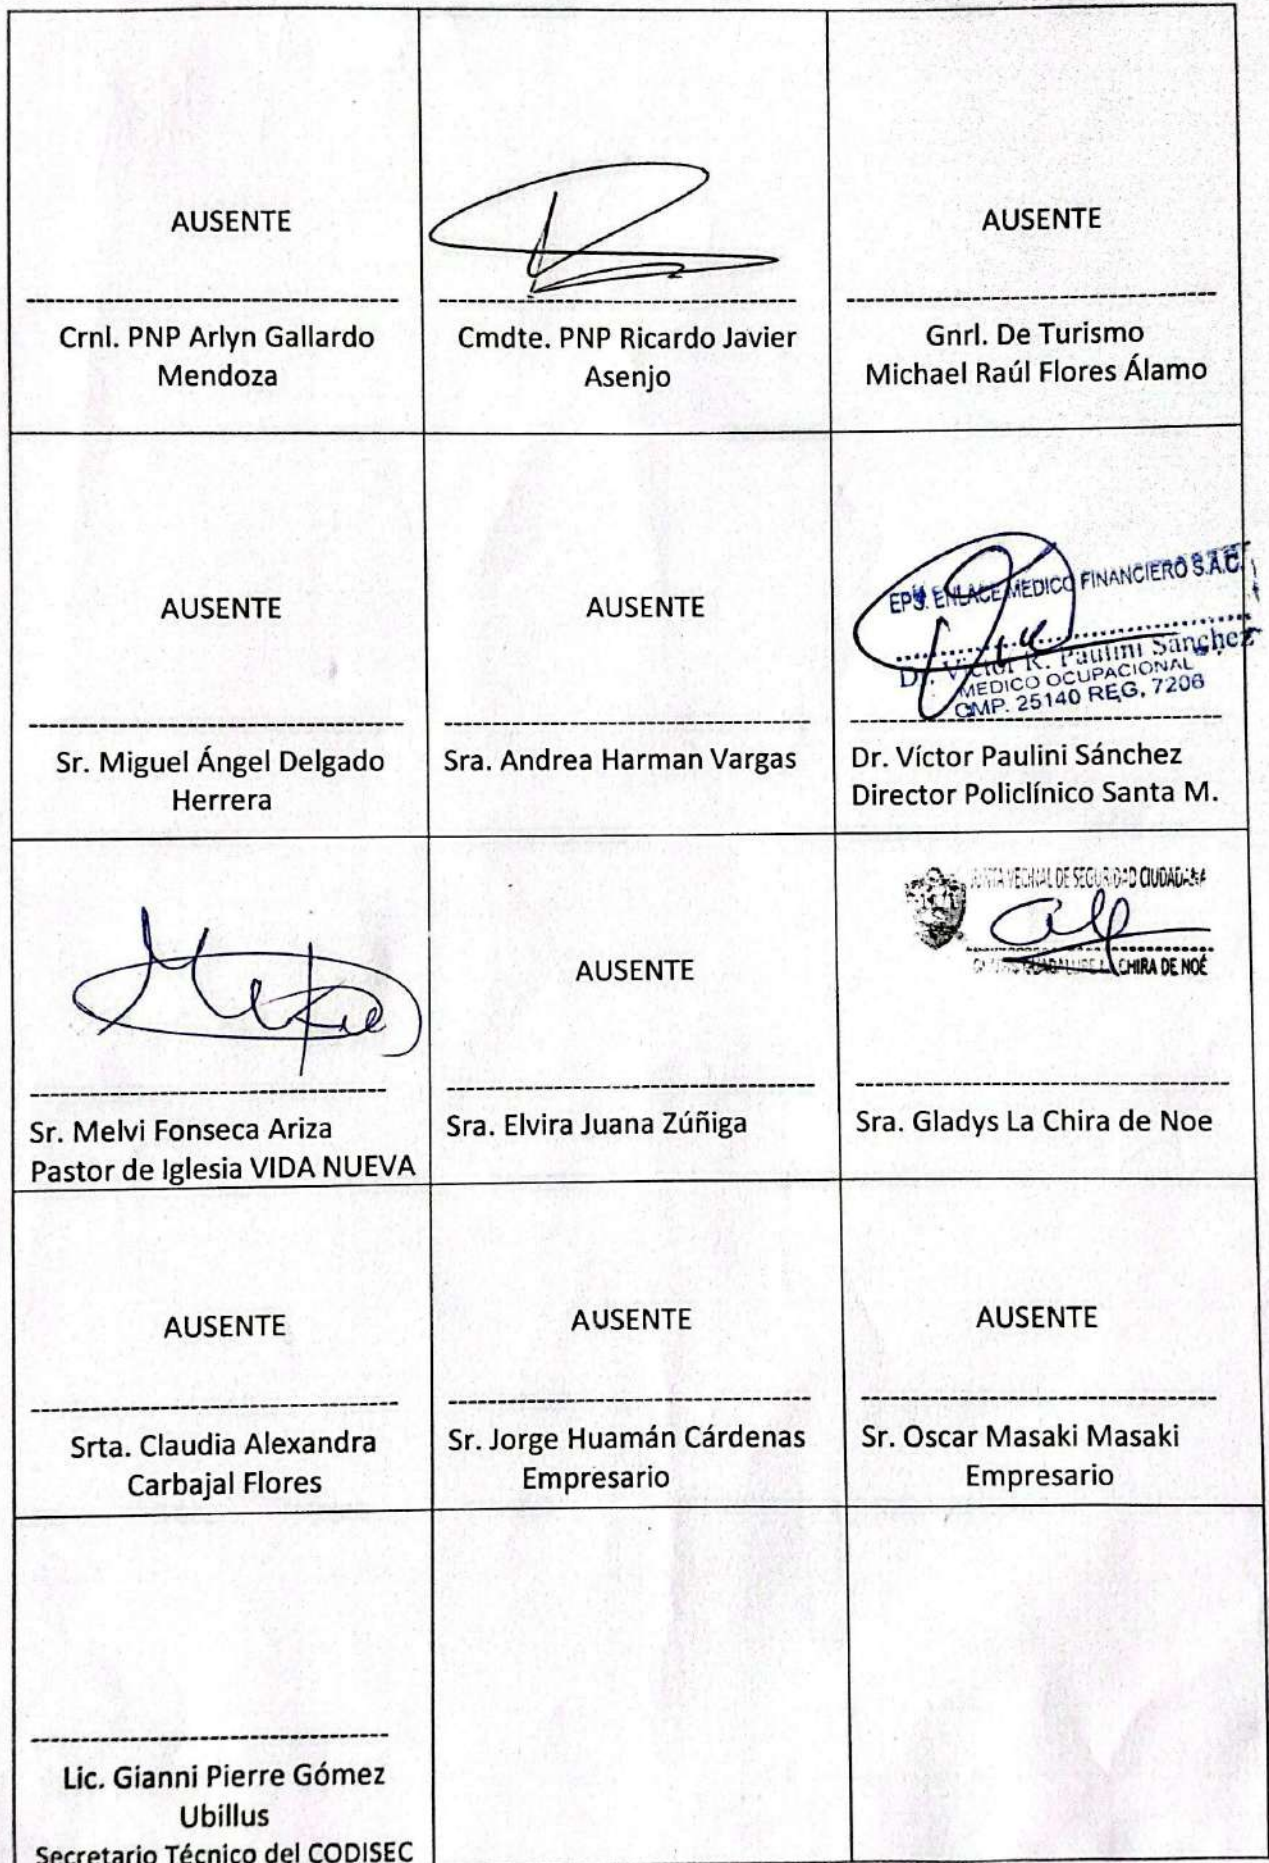 AUSENTE
Crnl. PNP Arlyn Gallardo
Mendoza
Cmdte. PNP Ricardo Javier
Asenjo
AUSENTE
Gnrl. De Turismo
Michael Raúl Flores Álamo
AUSENTE
Sr. Miguel Ángel Delgado
Herrera
AUSENTE
Sra. Andrea Harman Vargas
EPS. ENLACE MEDICO FINANCIERO S.A.C.
Dr. Victor R. Paulini Sánchez
MEDICO OCUPACIONAL
CMP. 25140 REG. 7206
Dr. Víctor Paulini Sánchez
Director Policlínico Santa M.
Sr. Melvi Fonseca Ariza
Pastor de Iglesia VIDA NUEVA
AUSENTE
Sra. Elvira Juana Zúñiga
JUNTA VECINAL DE SEGURIDAD CIUDADANA
GUADALUPE LA CHIRA DE NOÉ
Sra. Gladys La Chira de Noe
AUSENTE
Srta. Claudia Alexandra
Carbajal Flores
AUSENTE
Sr. Jorge Huamán Cárdenas
Empresario
AUSENTE
Sr. Oscar Masaki Masaki
Empresario
Lic. Gianni Pierre Gómez
Ubillus
Secretario Técnico del CODISEC